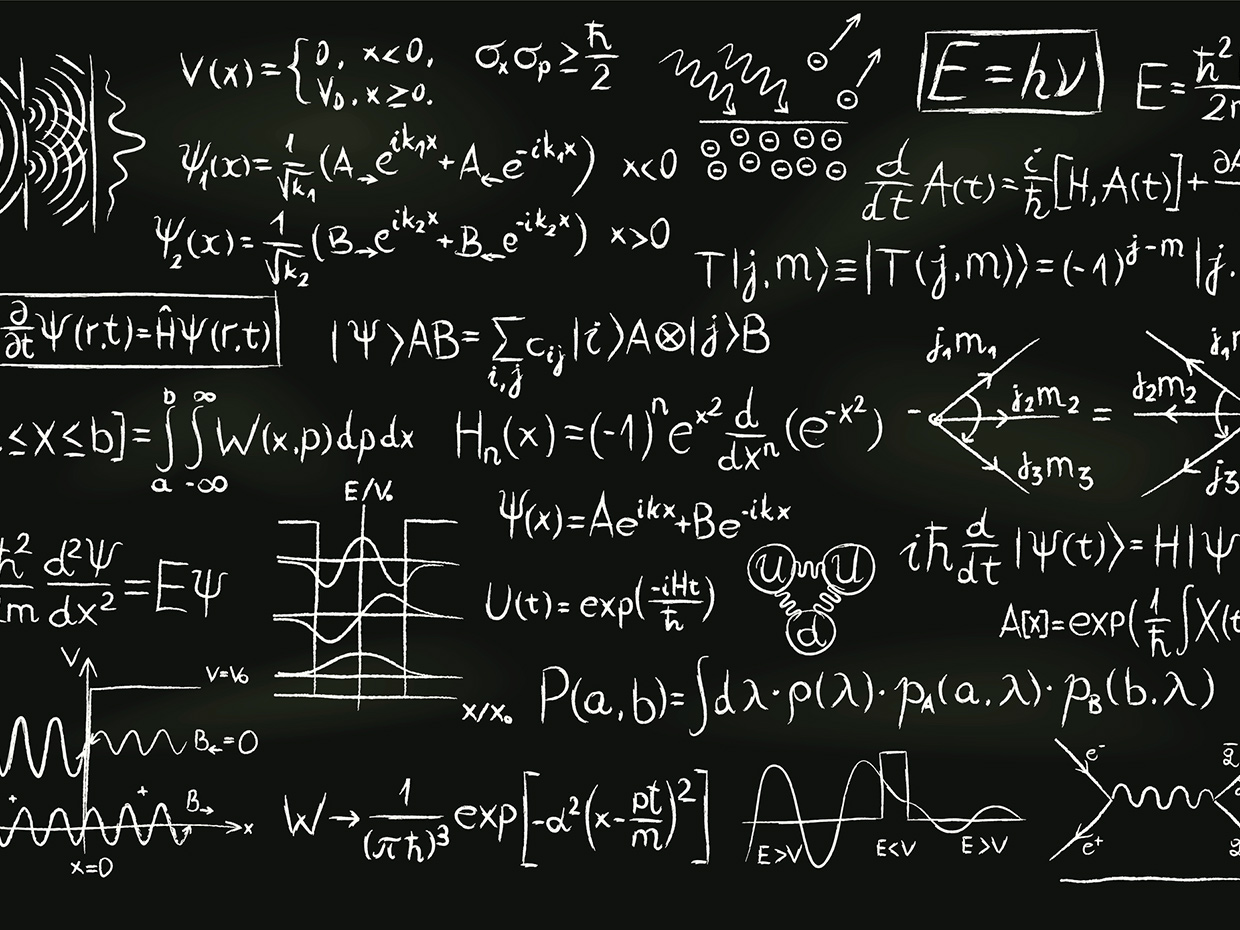 V(x)={0, x<0,
V₀, x≥0.
σₓσₚ≥ħ/2
E=hν
E=ħ²/2
ψ₁(x)=1/√k₁(A→e^{ik₁x}+A←e^{-ik₁x}) x<0
d/dt A(t)=i/ħ[H,A(t)]+∂A
ψ₂(x)=1/√k₂(B→e^{ik₂x}+B←e^{-ik₂x}) x>0
T|j,m⟩≡|T(j,m)⟩=(-1)^{j-m}|j.
∂/∂t Ψ(r,t)=ĤΨ(r,t)
|Ψ⟩AB=∑_{i,j}c_{ij}|i⟩A⊗|j⟩B
j₁m₁
j₂m₂
j₃m₃
-
=
j₁
j₂m₂
j₃
≤X≤b]=∫_a^b∫_{-∞}^{∞}W(x,p)dpdx
Hₙ(x)=(-1)ⁿe^{x²}d/dxⁿ(e^{-x²})
E/V₀
x/x₀
Ψ(x)=Ae^{ikx}+Be^{-ikx}
iħ d/dt|Ψ(t)⟩=H|Ψ
ħ²/m d²Ψ/dx²=EΨ
U(t)=exp(-iHt/ħ)
u u
d
A[x]=exp(1/ħ∫X(t
P(a,b)=∫dλ·ρ(λ)·p_A(a,λ)·p_B(b,λ)
V
V=V₀
B←=0
+ +
B→
x
x=0
W→1/(πħ)³exp[-α²(x-pt/m)²]
E>V E<V E>V
e⁻
e⁺